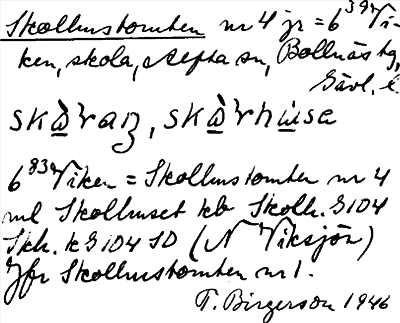 Skolhustomten nr 4 jr = 6³⁹ Vi-
ken, skola, Alfta sn, Bollnäs tg,
Gävl. l.
skὰraŋ, skὰrhu̇sa
6⁸³ Viken = Skolhustomten nr 4
ml Skolhuset kb Skolh. G104
Skh. k G104 SD (N Viksjön)
Jfr Skolhustomten nr 1.
T. Birgerson 1946